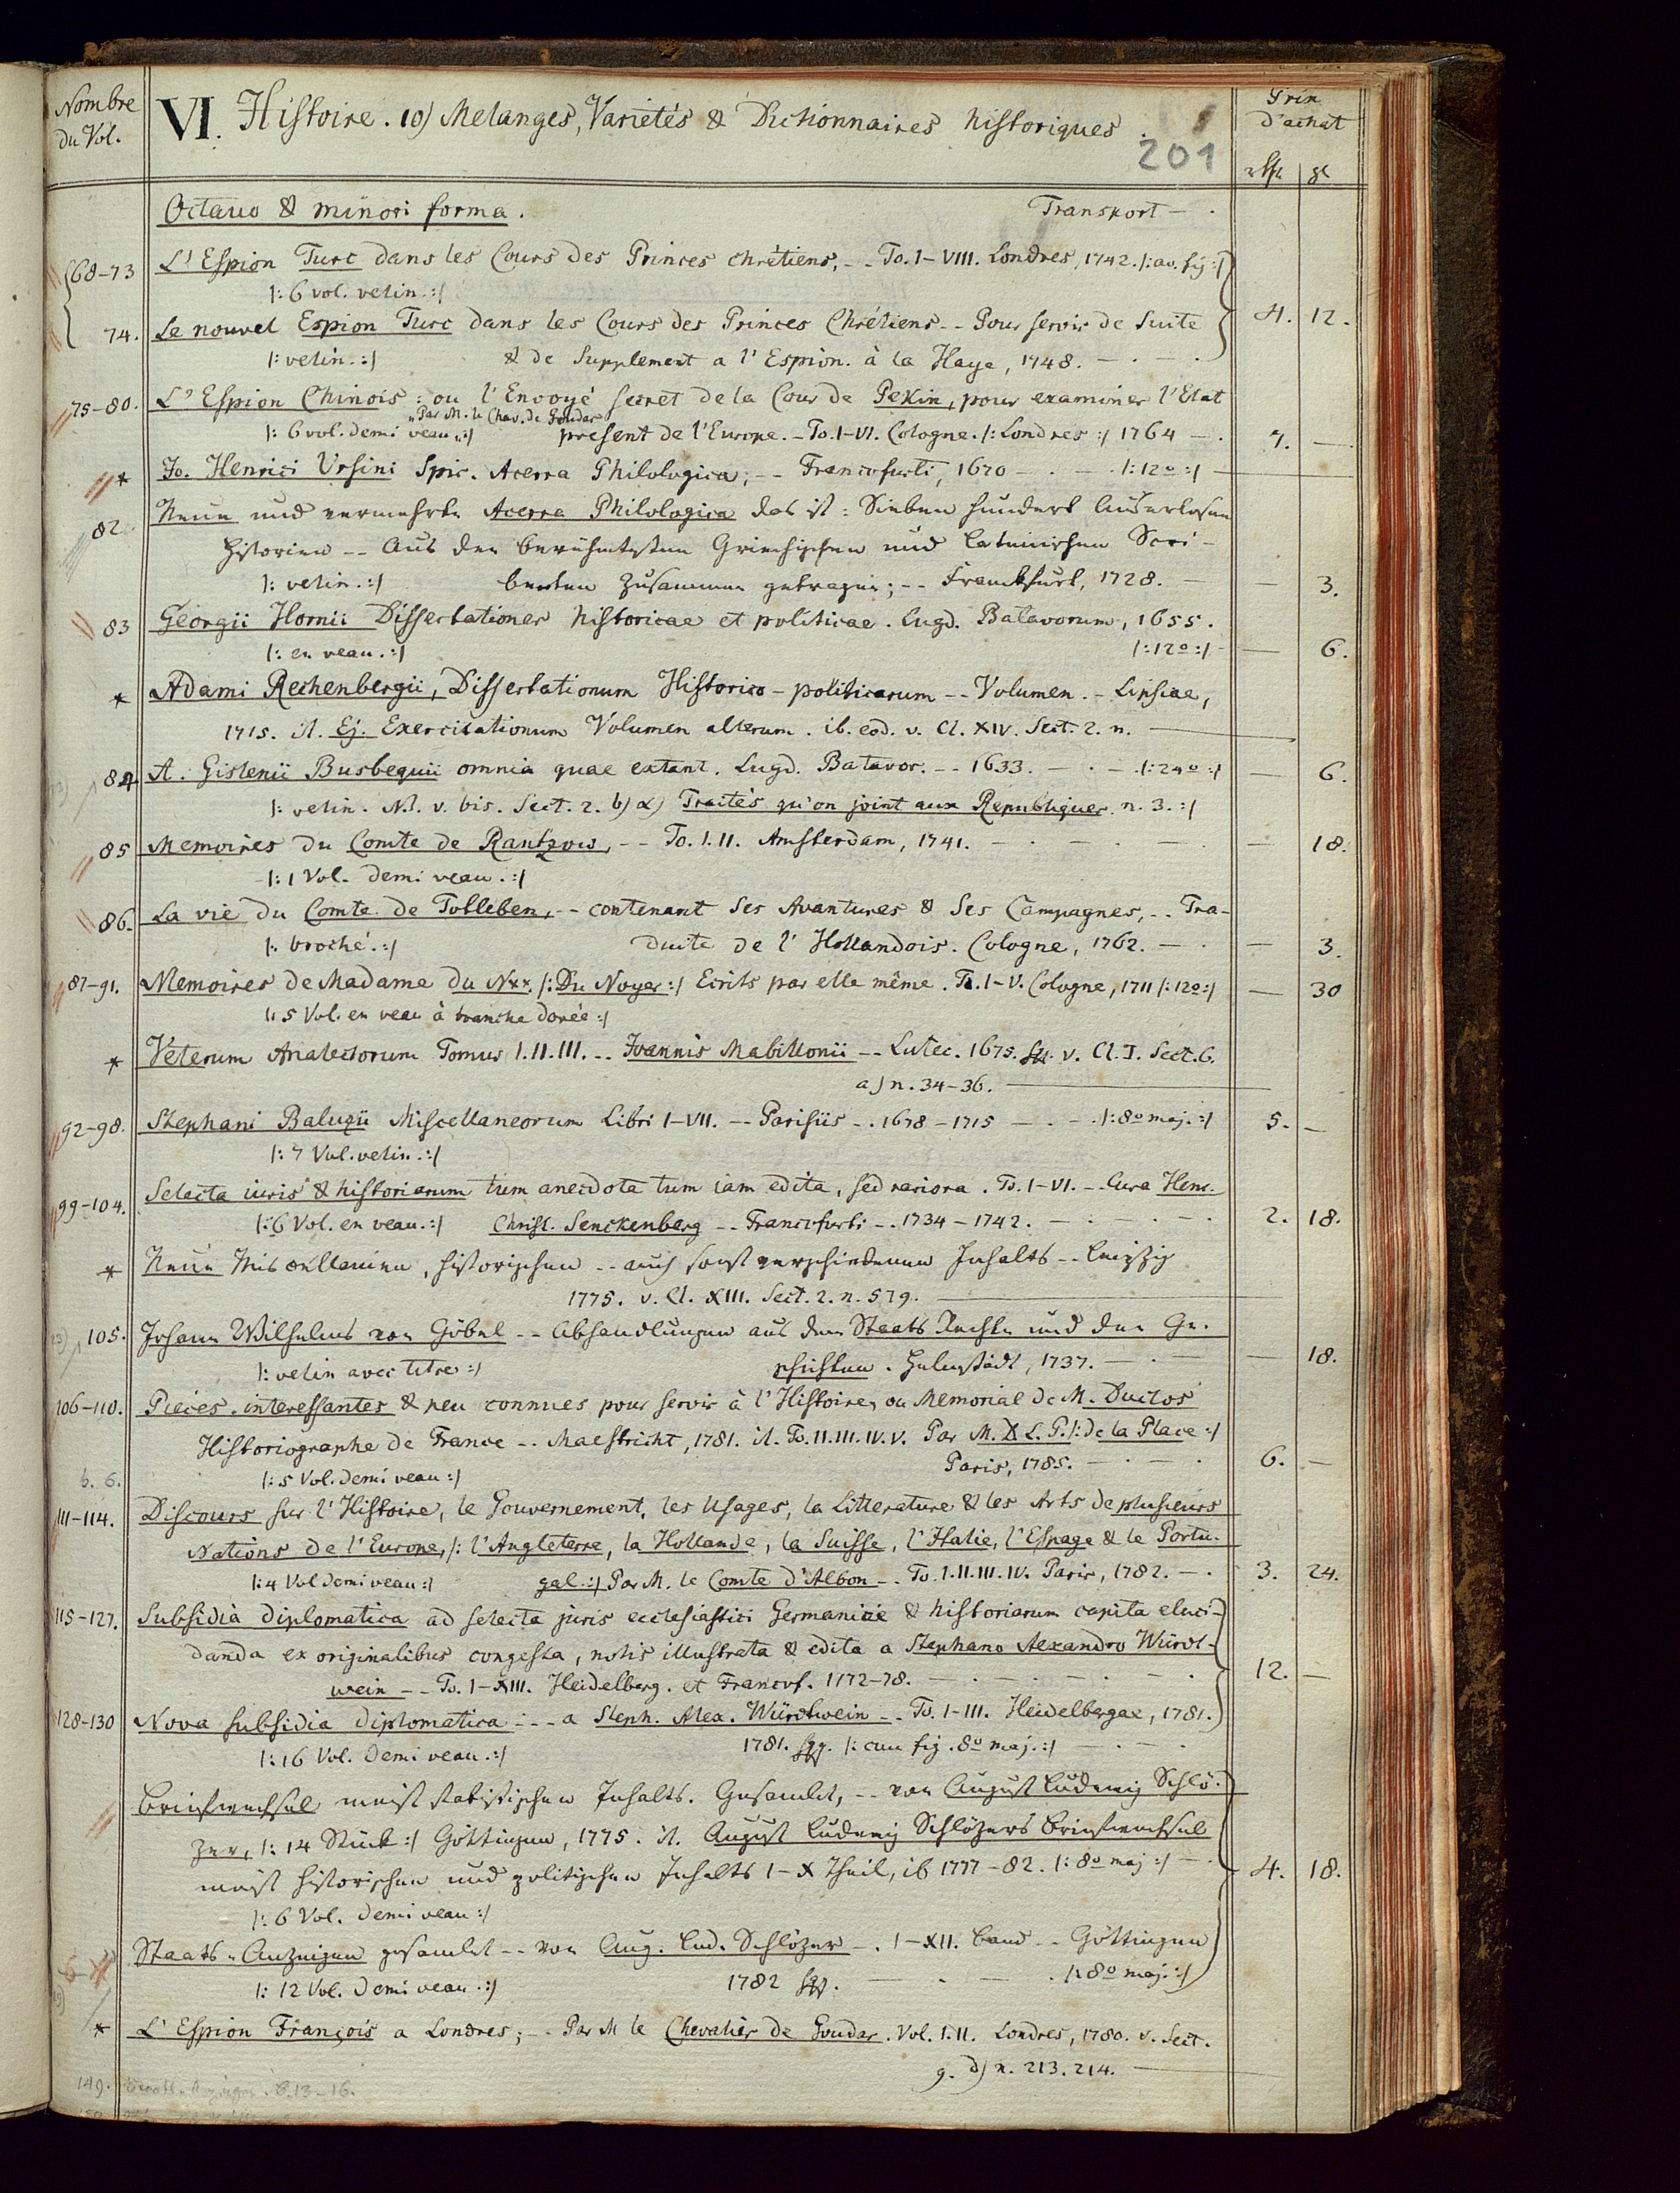 Nombre du Vol.
VI. Histoire. 10) Melanges, Varietés & Dictionnaires historiques.
201
Prix d'achat
rthl. gl
Octavo & minori forma. Transport — .
68-73 L'Espion Turc dans les Cours des Princes chrétiens, -- To. I-VIII. Londres, 1742. /: av. fig :/
/: 6 vol. velin. :/
74. Le nouvel Espion Turc dans les Cours des Princes Chrétiens -- Pour servir de Suite 4. 12.
/: velin. :/ & de Supplement a l'Espion. à la Haye, 1748. — . — .
75-80. L'Espion Chinois: ou l'Envoyé secret de la Cour de Pekin, pour examiner l'Etat
"Par M. le Chev. de Goudar"
/: 6 vol. demi veau. :/ présent de l'Europe. - To. I-VI. Cologne. /: Londres :/ 1764 — . 7. —
* Jo. Henrici Ursini Spir. Acerra Philologica; -- Francofurti, 1670 — . — . /: 12º :/
82. Neue und vermehrte Acerra Philologica das ist: Sieben hundert Auserlesene
Historien -- Aus den berühmtesten Griechischen und Lateinischen Scri-
/: velin. :/ benten zusammen getragen; -- Franckfurt, 1728. — — 3.
83 Georgii Hornii Dissertationes historicae et politicae. Lugd. Batavorum, 1655.
/: en veau. :/ /: 12º :/ - — 6.
* Adami Rechenbergii, Dissertationum Historico-politicarum -- Volumen. - Lipsiae,
1715. it. Ej. Exercitationum Volumen alterum. ib. eod. v. Cl. XIV. Sect. 2. n.
84 A. Gislenii Busbequii omnia quae extant. Lugd. Batavor. -- 1633. — . — . /: 24º :/ — 6.
/: velin. N.. v. bis. Sect. 2. b) α) Traités qu'on joint aux Republiques. n. 3. :/
85 Memoires du Comte de Rantzow, -- To. I. II. Amsterdam, 1741. — . — . — . — 18.
/: 1 Vol. demi veau. :/
86. La vie du Comte de Totleben, -- contenant ses Avantures & ses Campagnes, -- Tra-
/: broché. :/ duite de l'Hollandois. Cologne, 1762. — . — 3.
87-91. Memoires de Madame du N**. /: Du Noyer :/ Ecrits par elle même. To. I-V. Cologne, 1711 /: 12º :/ — 30
/: 5 Vol. en veau à tranche dorée :/
* Veterum Analectorum Tomus I. II. III. -- Joannis Mabillonii -- Lutec. 1675. sq. v. Cl. I. Sect. 6.
a) n. 34-36.
92-98. Stephani Baluzii Miscellaneorum Libri I-VII. -- Parisiis -. 1678-1715 — . — . /: 8º maj. :/ 5. —
/: 7 Vol. velin. :/
99-104. Selecta iuris & historiarum tum anecdota tum iam edita, sed rariora. To. I-VI. -- Cura Henr.
/: 6 Vol. en veau. :/ Christ. Senckenberg -- Francofurti -. 1734-1742. — . — . — . 2. 18.
* Neue Miscellanien, historischen -- auch sonst verschiedenen Inhalts -- Leipzig
1775. v. Cl. XIII. Sect. 2. n. 579.
105. Johann Wilhelms von Göbel -- Abhandlungen aus dem Staats Rechte und den Ge-
/: velin avec titre :/ schichten. Helmstädt, 1737. — . — — 18.
106-110. Pieces interessantes & peu connues pour servir à l'Histoire, ou Memorial de M. Duclos
Historiographe de France -- Maestricht, 1781. it. To. II. III. IV. V. Par M. D. L. P. /: de la Place :/
/: 5 Vol. demi veau :/ Paris, 1785. — . — . 6. —
b. 6.
111-114. Discours sur l'Histoire, le Gouvernement, les Usages, la Litterature & les Arts de plusieurs
Nations de l'Europe, /: l'Angleterre, la Hollande, la Suisse, l'Italie, l'Espage & le Portu-
/: 4 Vol demi veau :/ gal. :/ Par M. le Comte d'Albon -- To. I. II. III. IV. Paris, 1782. — . 3. 24.
115-127. Subsidia diplomatica ad selecta juris ecclesiastici Germaniae & historiarum capita eluci-
danda ex originalibus congesta, notis illustrata & edita a Stephano Alexandro Würdt-
wein -- To. I-XIII. Heidelberg. et Francof. 1772-78. — . — . — . — . 12. —
128-130 Nova subsidia diplomatica -- a Steph. Alex. Würdtwein -- To. I-III. Heidelbergae, 1781.
/: 16 Vol. demi veau. :/ 1781. sqq. /: cum fig. 8º maj. :/ — . — .
Briefwechsel meist statistischen Inhalts. Gesamlet, -- von August Ludewig Schlö-
zer, /: 14 Stück :/ Göttingen, 1775. it. August Ludewig Schlözers Briefwechsel
meist historischen und politischen Inhalts I-X Theil, ib 1777-82. /: 8º maj :/ — . 4. 18.
/: 6 Vol. demi veau :/
Staats-Anzeigen gesamlet -- von Aug. Lud. Schlözer -. I-XII. Band -- Göttingen
/: 12 Vol. demi veau. :/ 1782 sqq. — . — . /: 8º maj. :/
* L'Espion François a Londres; -- Par M le Chevalier de Goudar. Vol. I. II. Londres, 1780. v. Sect.
g. d) n. 213. 214.
149. Staats-Anzeigen. B. 13-16.